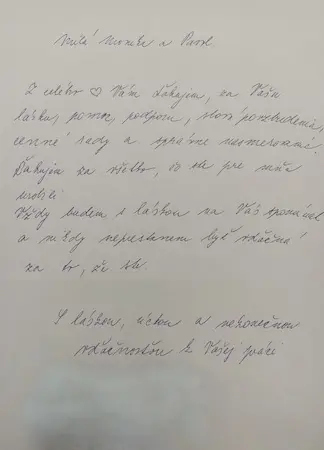 Milá Monika a Pavol.
Z celého ♡ Vám ďakujem, za Vašu
lásku, pomoc, podporu, slová povzbudenia,
cenné rady a správne nasmerovanie.
Ďakujem za všetko, čo ste pre mňa
urobili
Vždy budem s láskou na Vás spomínať
a nikdy neprestanem byť vďačná
za to, že ste.
S láskou, úctou a nekonečnou
vďačnosťou k Vašej práci